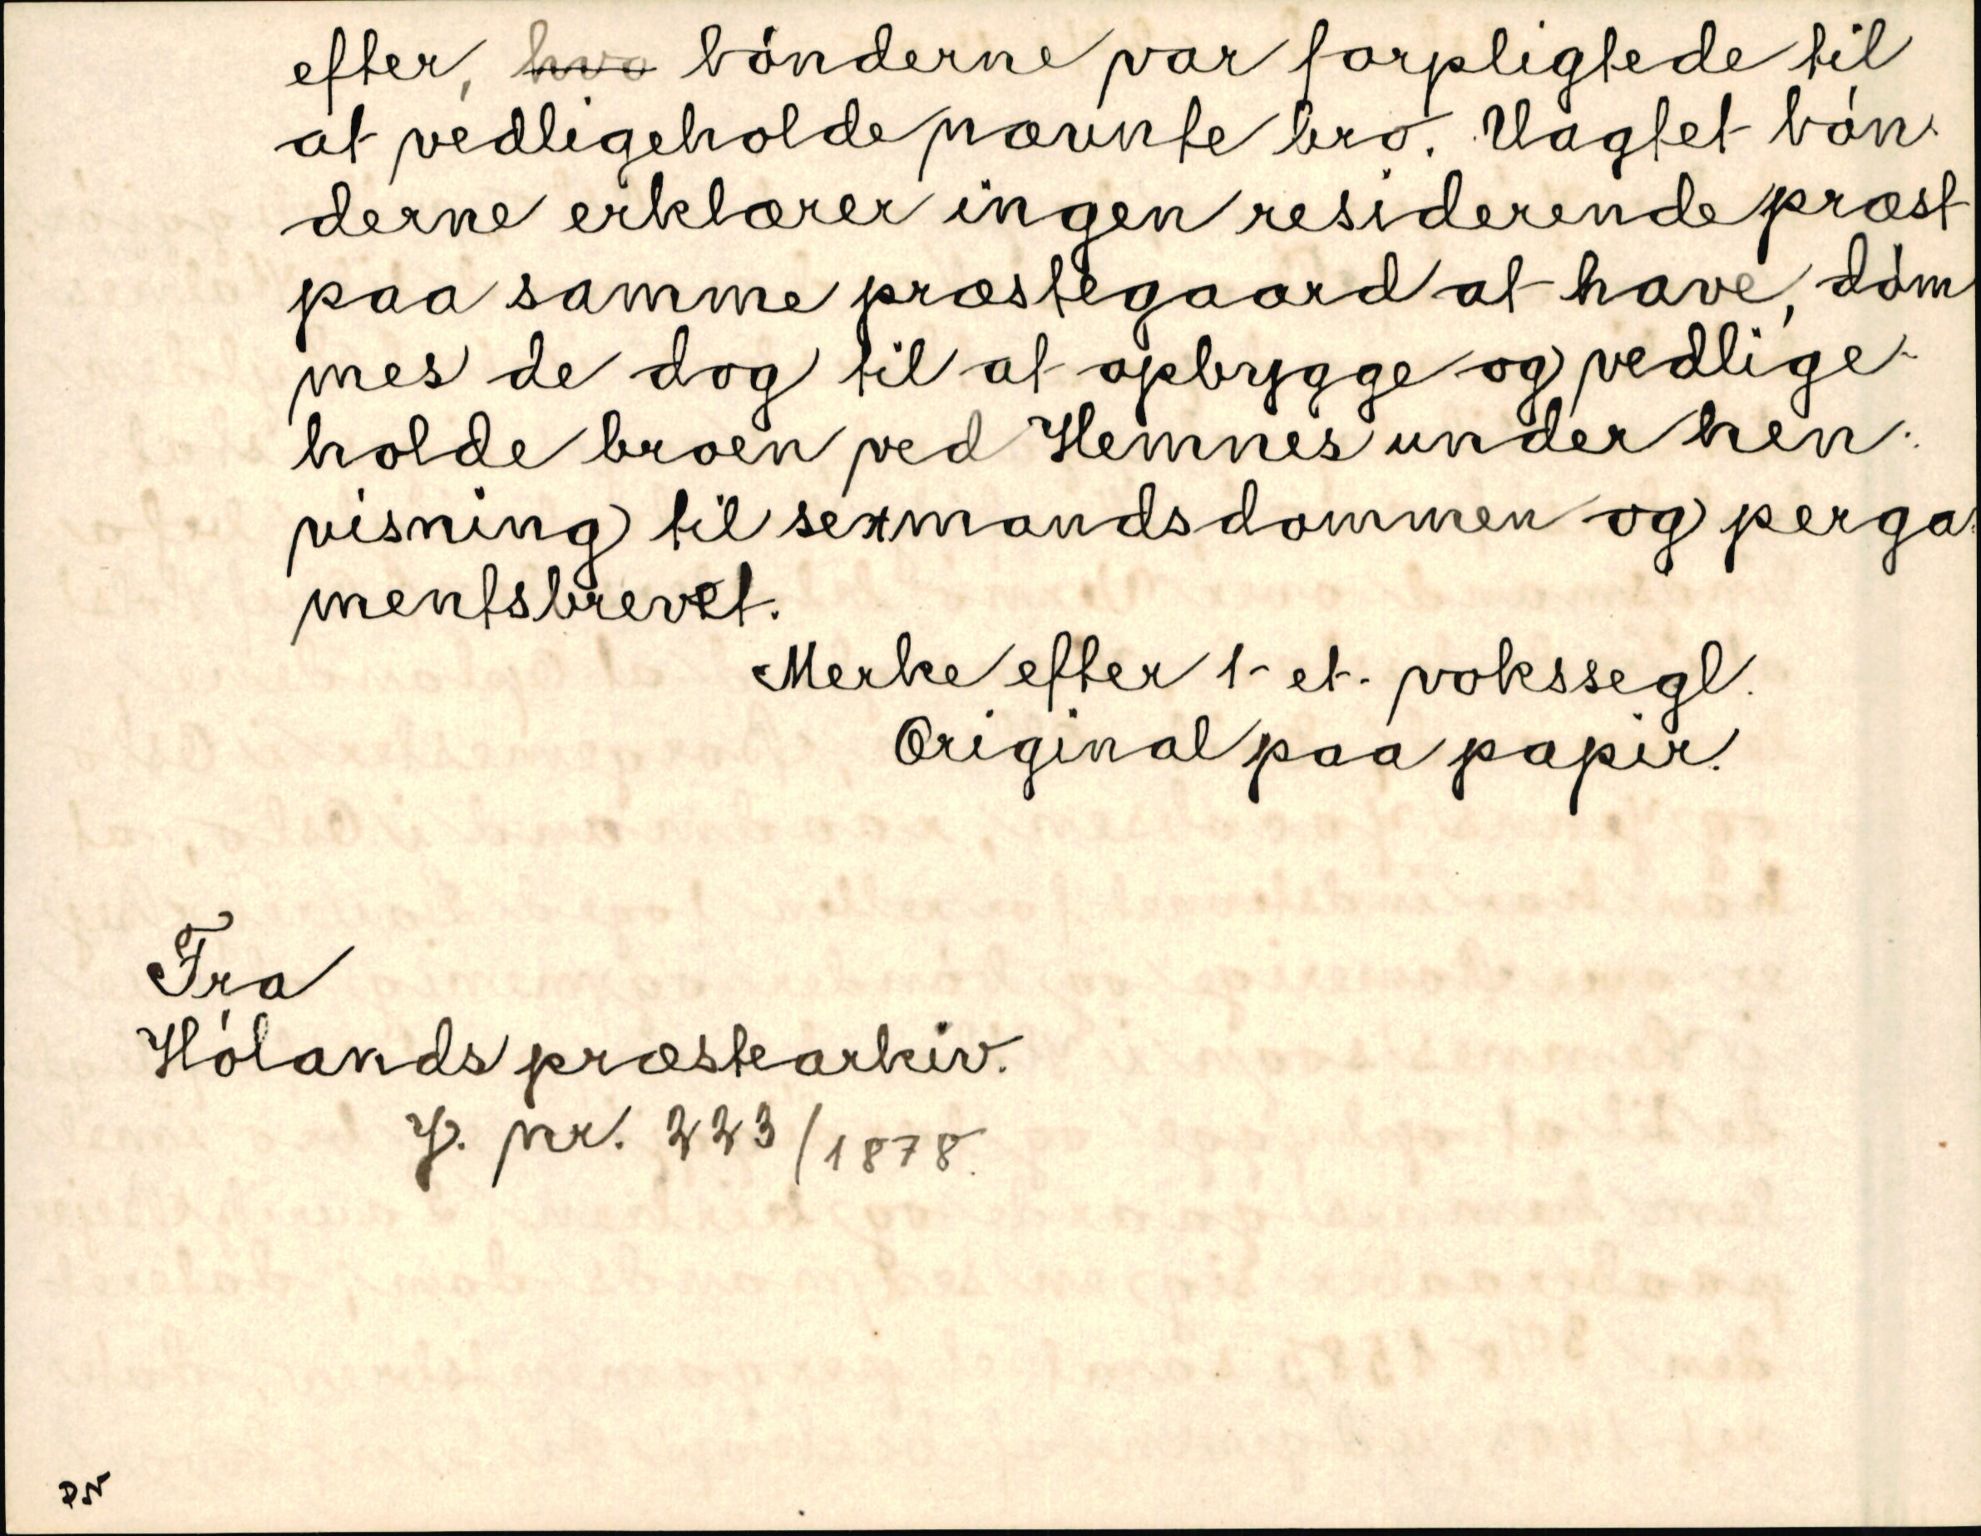 efter, hvo bónderne var forpligtede til
at vedligeholde nævnte bro. Uagtet bón-
derne erklærer ingen residerende præst
paa samme præstegaard at have, dóm
mes de dog til at opbygge og vedlige-
holde broen ved Hemnes under hen-
visning til sexmandsdommen og perga-
mentsbrevet.
Merke efter 1- et- vokssegl.
Original paa papir.
Fra
Hólands præstearkiv.
J. nr. 223/1878.
DN